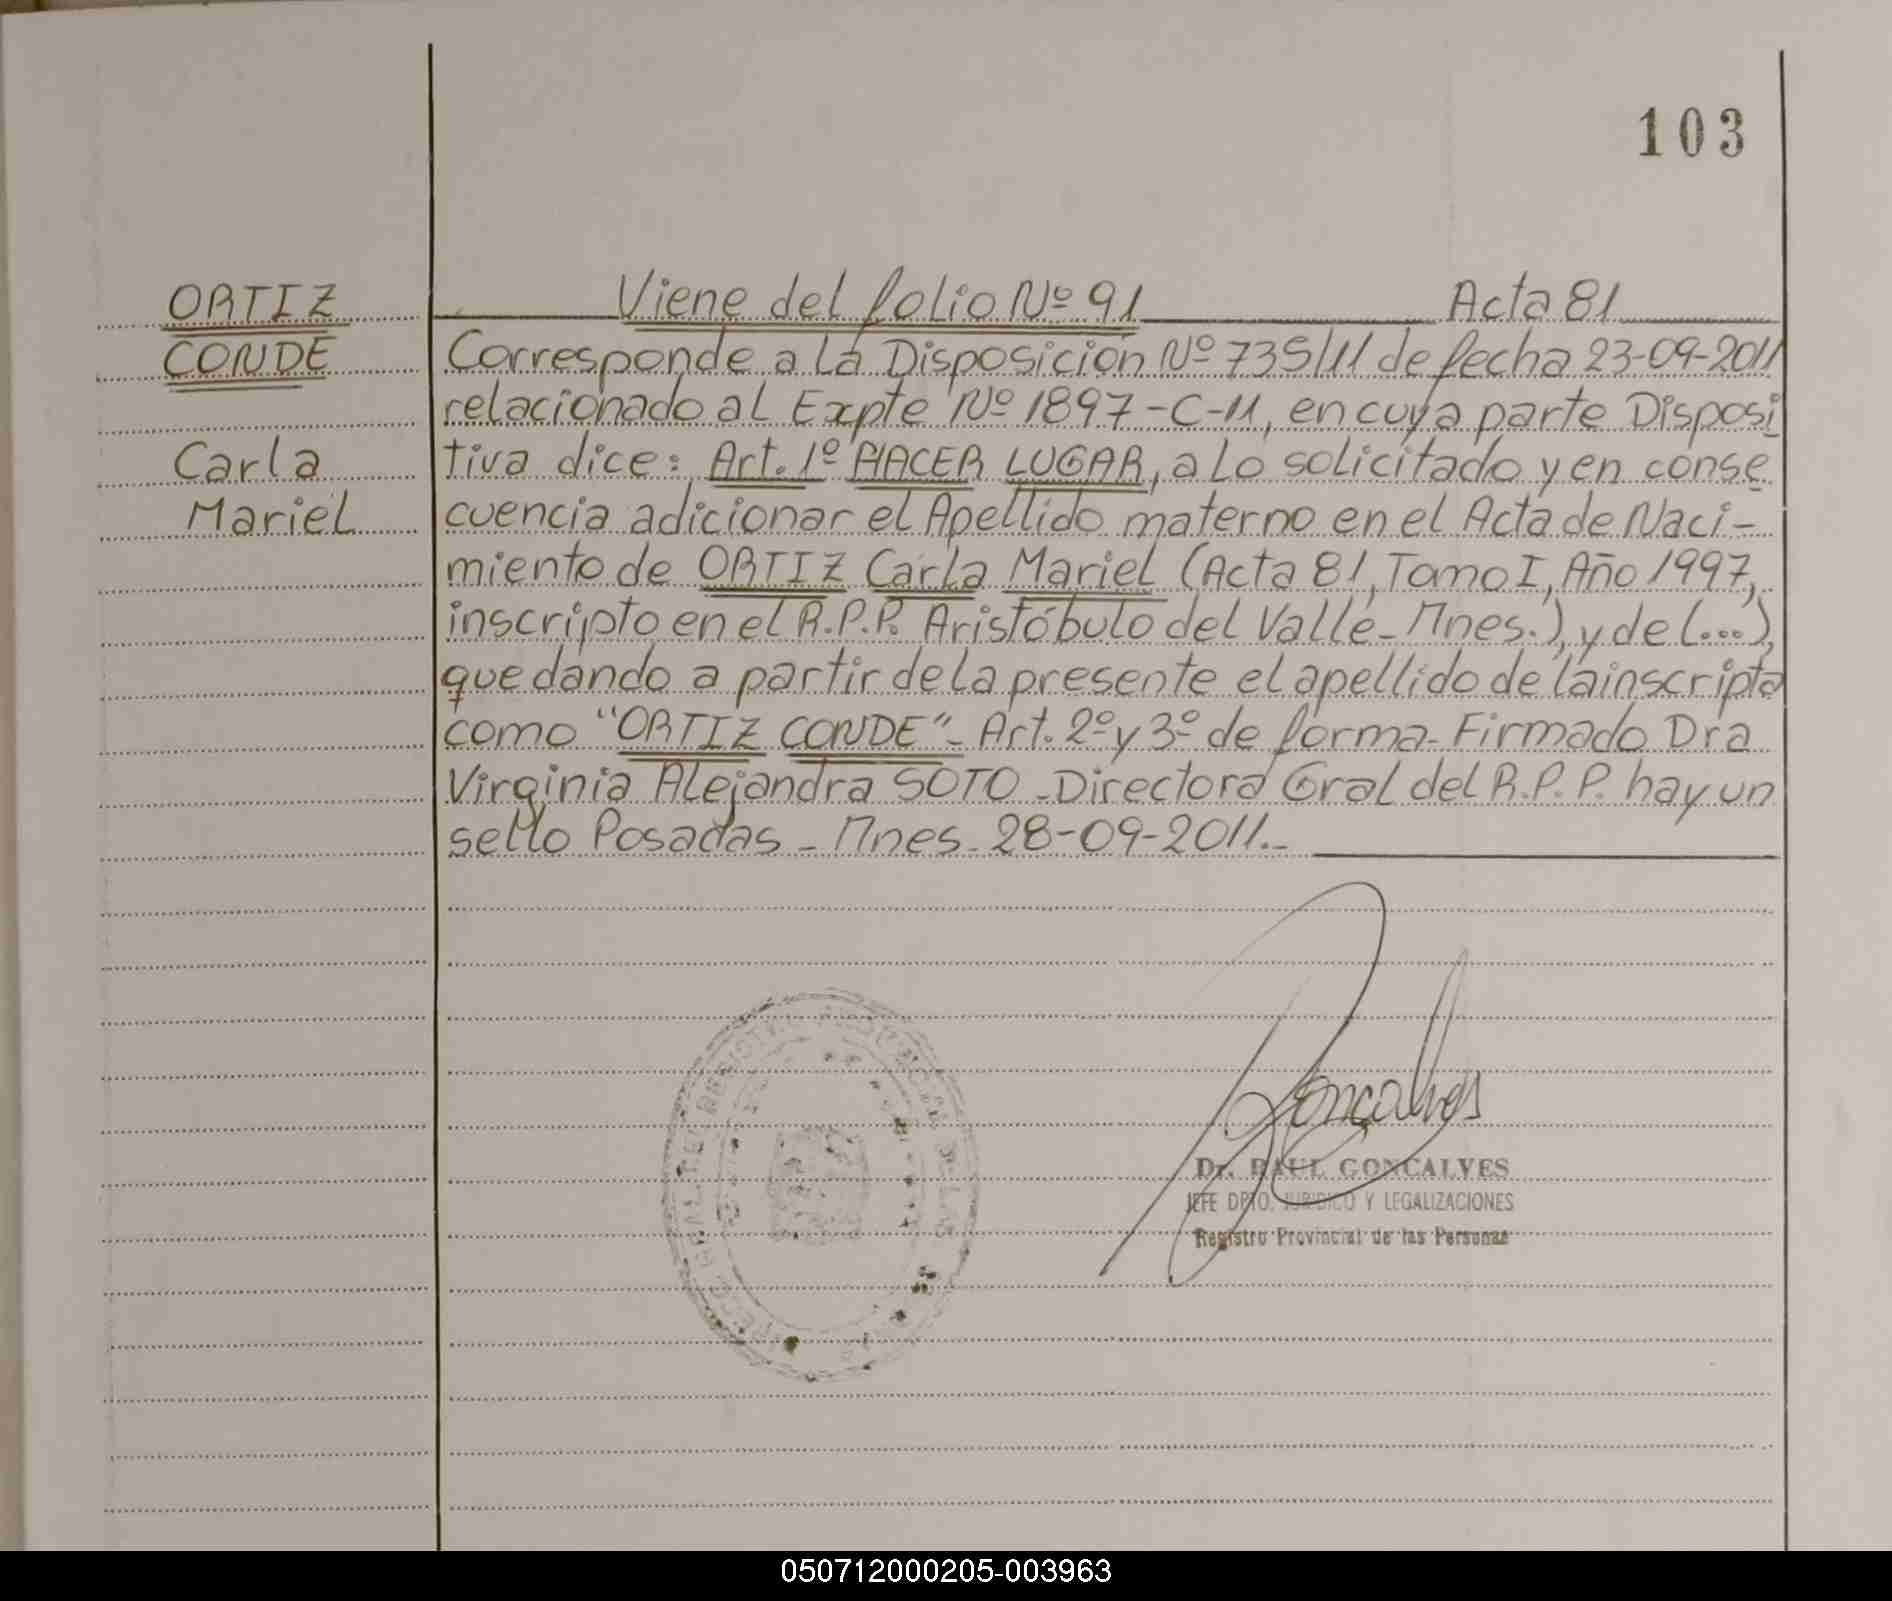 103
ORTIZ
CONDE
Carla
Mariel
Viene del folio Nº 91 Acta 81
Corresponde a la Disposición Nº 735/11 de fecha 23-09-2011
relacionado al Expte Nº 1897-C-11, en cuya parte Disposi
tiva dice: Art. 1º HACER LUGAR, a lo solicitado y en conse
cuencia adicionar el Apellido materno en el Acta de Naci-
miento de ORTIZ Carla Mariel (Acta 81, Tomo I, Año 1997,
inscripto en el R.P.P. Aristóbulo del Valle - Mnes.), y de (...),
quedando a partir de la presente el apellido de la inscripta
como "ORTIZ CONDE" - Art. 2º y 3º de forma - Firmado Dra
Virginia Alejandra SOTO - Directora Gral del R.P.P. hay un
sello Posadas - Mnes - 28-09-2011.-
Goncalves
Dr. RAUL GONCALVES
JEFE DPTO. JURIDICO Y LEGALIZACIONES
Registro Provincial de las Personas
050712000205-003963